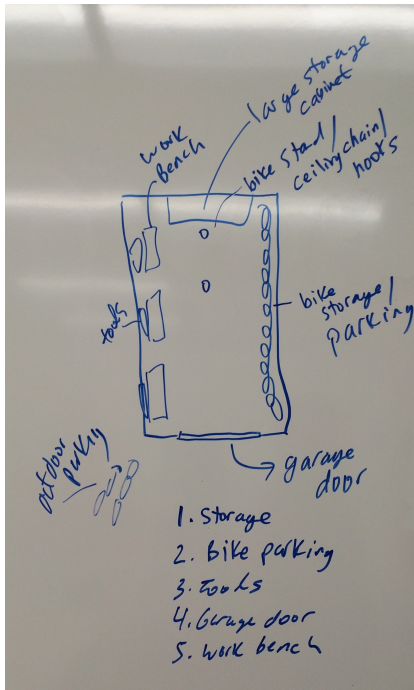 large storage
cabinet
work
bench
bike stand/
ceiling chain/
hooks
tools
bike
storage/
parking
outdoor
parking
garage
door
1. Storage
2. Bike parking
3. Tools
4. Garage door
5. Work bench